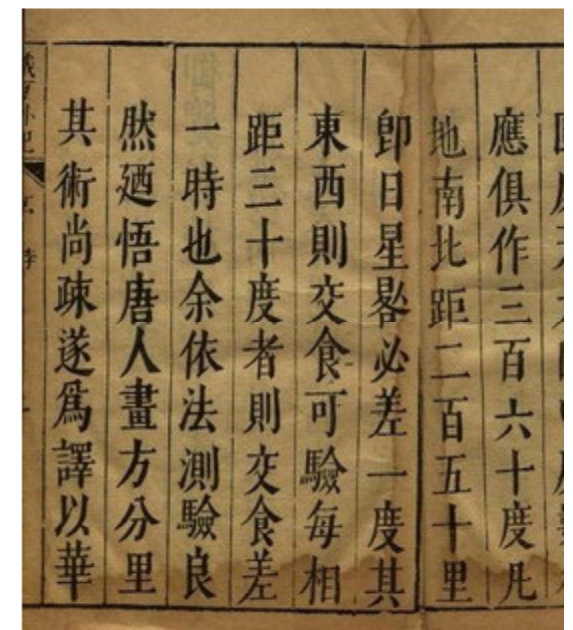 應俱作三百六十度凡
地南北距二百五十里
卽日星晷必差一度其
東西則交食可驗每相
距三十度者則交食差
一時也余依法測驗良
然廼悟唐人畫方分里
其術尚疎遂爲譯以華